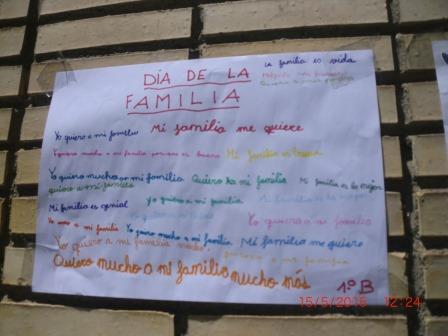 DIA DE LA
FAMILIA
LA familia es vida
Yo quiero a mi familia Mi familia me quiere
Yo quiero mucho a mi familia porque es bueno Mi familia es buena
Yo quiero mucho a mi familia Quiero a mi familia Mi familia es la mejor
quiero a mi familia
Mi familia es genial yo quiero a mi familia
Yo quiero a mi familia
Yo amo a mi familia Yo quiero mucho a mi familia Mi familia me quiere
Yo quiero a mi familia mucho
Quiero mucho a mi familia mucho más
1º B
15/5/2015 12:24